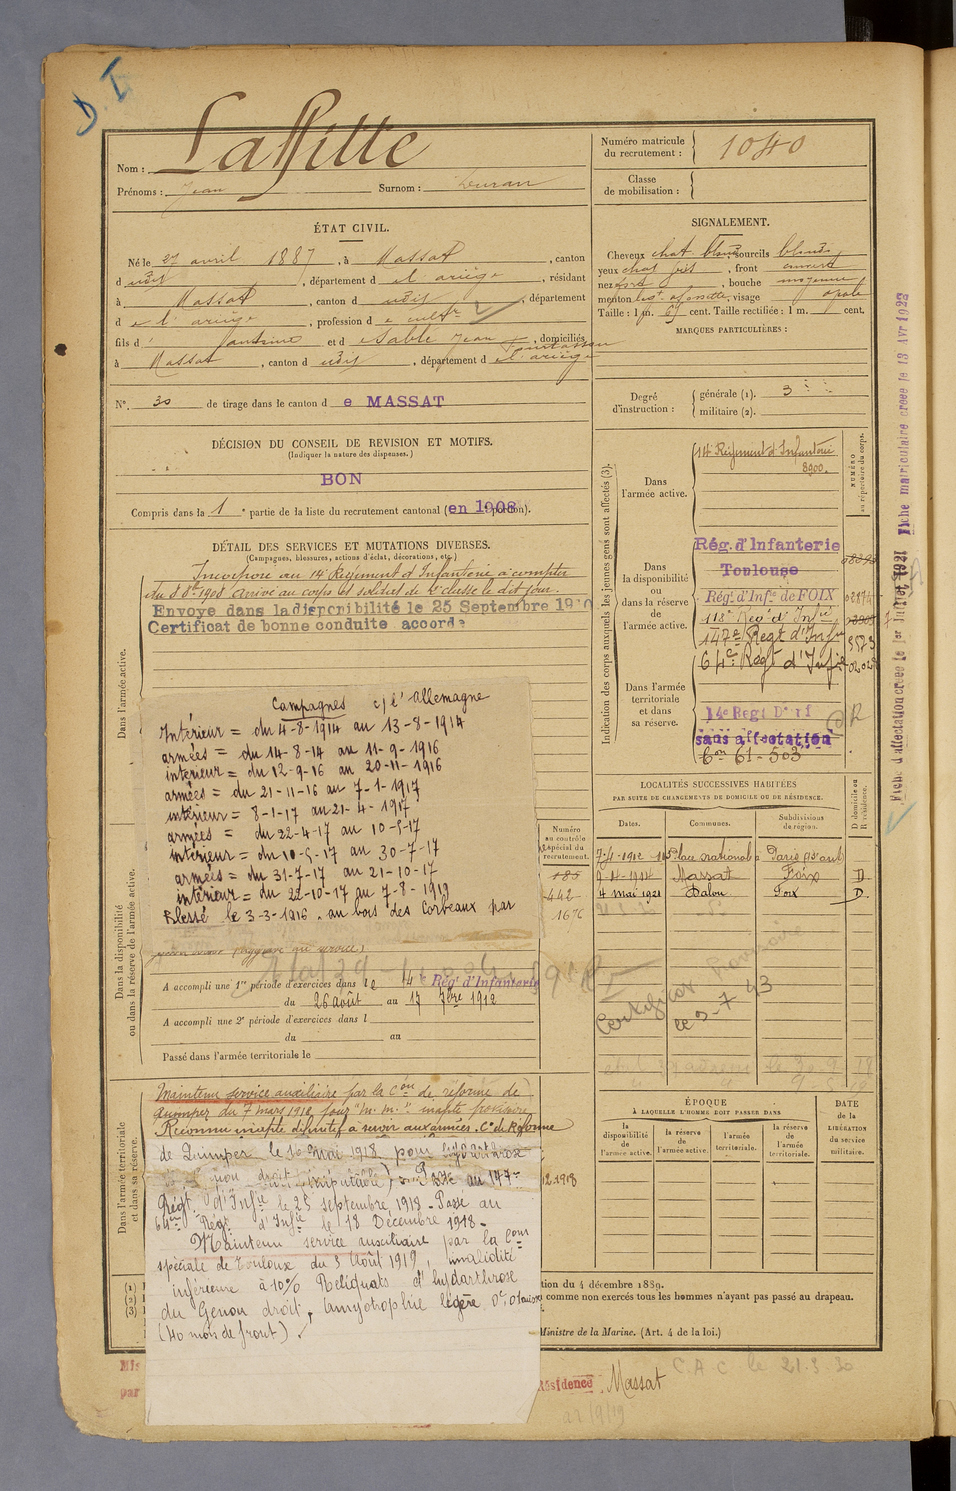 D. I
Nom : Laffitte
Prénoms : Jean Surnom : Duran
Numéro matricule
du recrutement : 1040
Classe
de mobilisation :
ÉTAT CIVIL.
Né le 27 avril 1887, à Massat, canton
dudit, département de l'ariège, résidant
à Massat, canton dudit, département
de l'ariège, profession de cultr
fils d' Antoine et d , domiciliés
à Massat, canton dudit, département de l'ariège
N°. 30 de tirage dans le canton de MASSAT
SIGNALEMENT.
Cheveux chat. blond, sourcils blonds
yeux chat gris, front ouvert
nez fort, bouche moyenne
menton, visage ovale
Taille : 1 m. 67 cent. Taille rectifiée : 1 m. cent.
MARQUES PARTICULIÈRES :
Degré
d'instruction :
générale (1). 3
militaire (2).
DÉCISION DU CONSEIL DE REVISION ET MOTIFS.
(Indiquer la nature des dispenses.)
BON
Compris dans la 1e partie de la liste du recrutement cantonal (en 1908 portion).
DÉTAIL DES SERVICES ET MUTATIONS DIVERSES.
(Campagnes, blessures, actions d'éclat, décorations, etc.)
Dans l'armée active.
Incorporé au 14e Régiment d'Infanterie à compter
du 8 8bre 1908 arrivé au corps et soldat de 2e classe le dit jour.
Envoyé dans la disponibilité le 25 Septembre 1910
Certificat de bonne conduite accordé
Campagnes c/ l'Allemagne
Intérieur = du 4-8-1914 au 13-8-1914
armées = du 14-8-14 au 11-9-1916
intérieur = du 12-9-16 au 20-11-1916
armées = du 21-11-16 au 7-1-1917
intérieur = 8-1-17 au 21-4-1917
armées = du 22-4-17 au 10-5-17
intérieur = du 10-5-17 au 30-7-17
armées = du 31-7-17 au 21-10-17
intérieur = du 22-10-17 au 7-8-1919
Blessé le 3-3-1916. au bois des Corbeaux par
Dans la disponibilité
ou dans la réserve de l'armée active.
A accompli une 1re période d'exercices dans le 14e Rég. d'Infanterie
du 26 août au 17 7bre 1912
A accompli une 2e période d'exercices dans l
du au
Passé dans l'armée territoriale le
Numéro
au contrôle
spécial du
recrutement.
185
442
1676
Dans l'armée territoriale
et dans sa réserve.
Maintenu service auxiliaire par la Con de réforme de
Quimper du 7 mars 1918 pour "m. m." inapte provisoire
Reconnu inapte définitif à servir aux armées. Con de Réforme
de Quimper le 16 Mai 1918 pour hydarthrose
Passé au 147e
Régt. d'Infie le 25 Septembre 1918 - Passé au
64me Régt d'Infie le 18 Décembre 1918 -
Maintenu service auxiliaire par la Con
spéciale de Toulouse du 5 Août 1919, invalidité
inférieure à 10% Reliquats d'hydarthrose
du Genou droit, amyotrophie légère
(40 mois de front).
12.1918
Indication des corps auxquels les jeunes gens sont affectés (3).
NUMÉRO
au répertoire du corps.
Dans
l'armée active.
14e Régiment d'Infanterie
8900.
Dans
la disponibilité
ou
dans la réserve
de
l'armée active.
Rég. d'Infanterie
Toulouse
Rég. d'Infie de FOIX
118e Reg d'Infie
147e Regt d'Infie
5573
64e Regt d'Infie
Dans l'armée
territoriale
et dans
sa réserve.
14e Regt D' If
sans affectation
Con 61-503
R
LOCALITÉS SUCCESSIVES HABITÉES
PAR SUITE DE CHANGEMENTS DE DOMICILE OU DE RÉSIDENCE.
Dates. Communes. Subdivisions
de région. D domicile ou
R résidence.
7-4-1912 Place nationale Paris
9-4-1914 Massat Foix D
4 mai 1921 Dalou Foix D
Certificat provisoire
le 9-7 43
ÉPOQUE
À LAQUELLE L'HOMME DOIT PASSER DANS
la
disponibilité
de
l'armée active.
la réserve
de
l'armée active.
l'armée
territoriale.
la réserve
de
l'armée
territoriale.
DATE
de la
LIBÉRATION
du service
militaire.
(1)
(2)
(3)
tion du 4 décembre 1889.
comme non exercés tous les hommes n'ayant pas passé au drapeau.
Ministre de la Marine. (Art. 4 de la loi.)
Mis
par
Résidence Massat
C.A.C le 21.3.30
Fiche d'affectation créée le 1er Juillet 1921
Fiche matriculaire créée le 13 Avr 1923